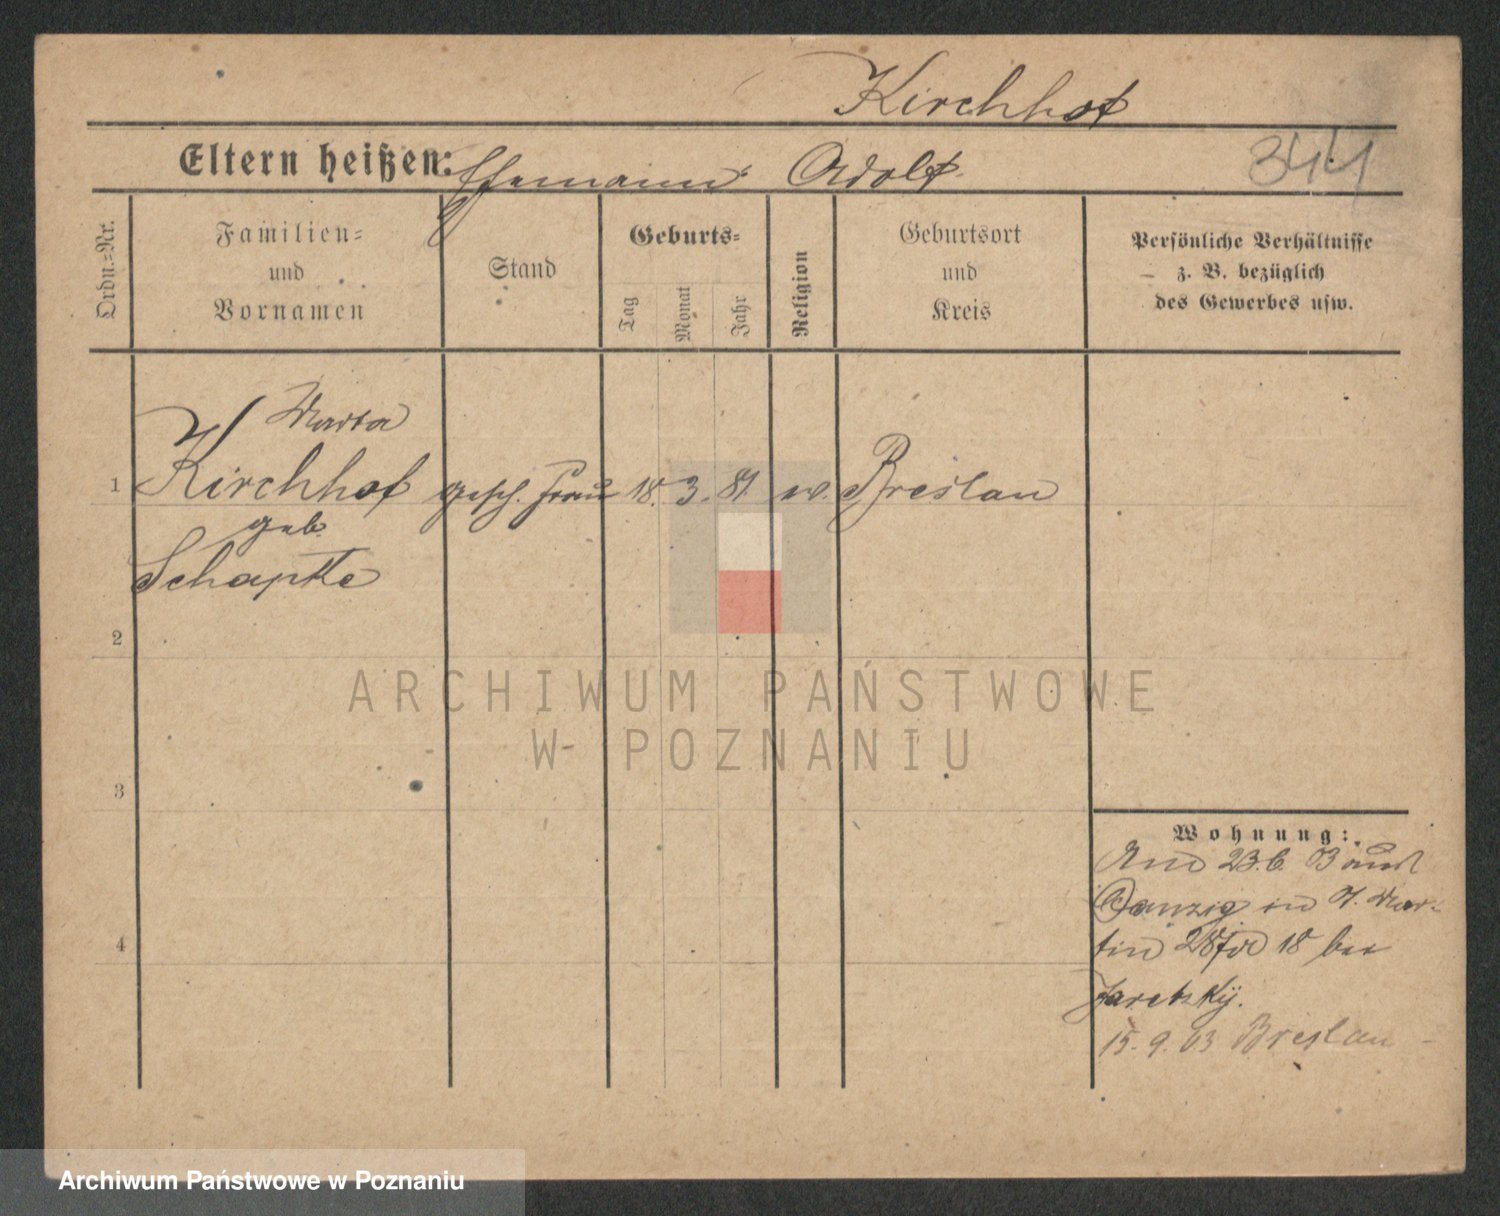 Kirchhof
Eltern heißen: Ehemann Adolf
344
Ordn.=Nr.
Familien=
und
Vornamen
Stand
Geburts=
Tag
Monat
Jahr
Religion
Geburtsort
und
Kreis
Persönliche Verhältnisse
z. B. bezüglich
des Gewerbes usw.
Marta
1 Kirchhof gesch. Frau 18. 3. 81. ev. Breslau
geb.
Schapke
2
3
4
Wohnung:
23.6. 03
Danzig in St. Mar-
tin 18 bei
Jaretzky.
15. 9. 03 Breslau
ARCHIWUM PAŃSTWOWE
W POZNANIU
Archiwum Państwowe w Poznaniu